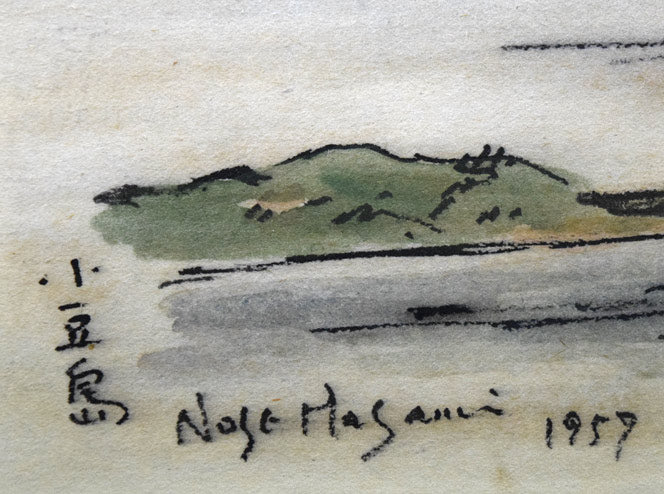 小豆島
Nose Masami 1957